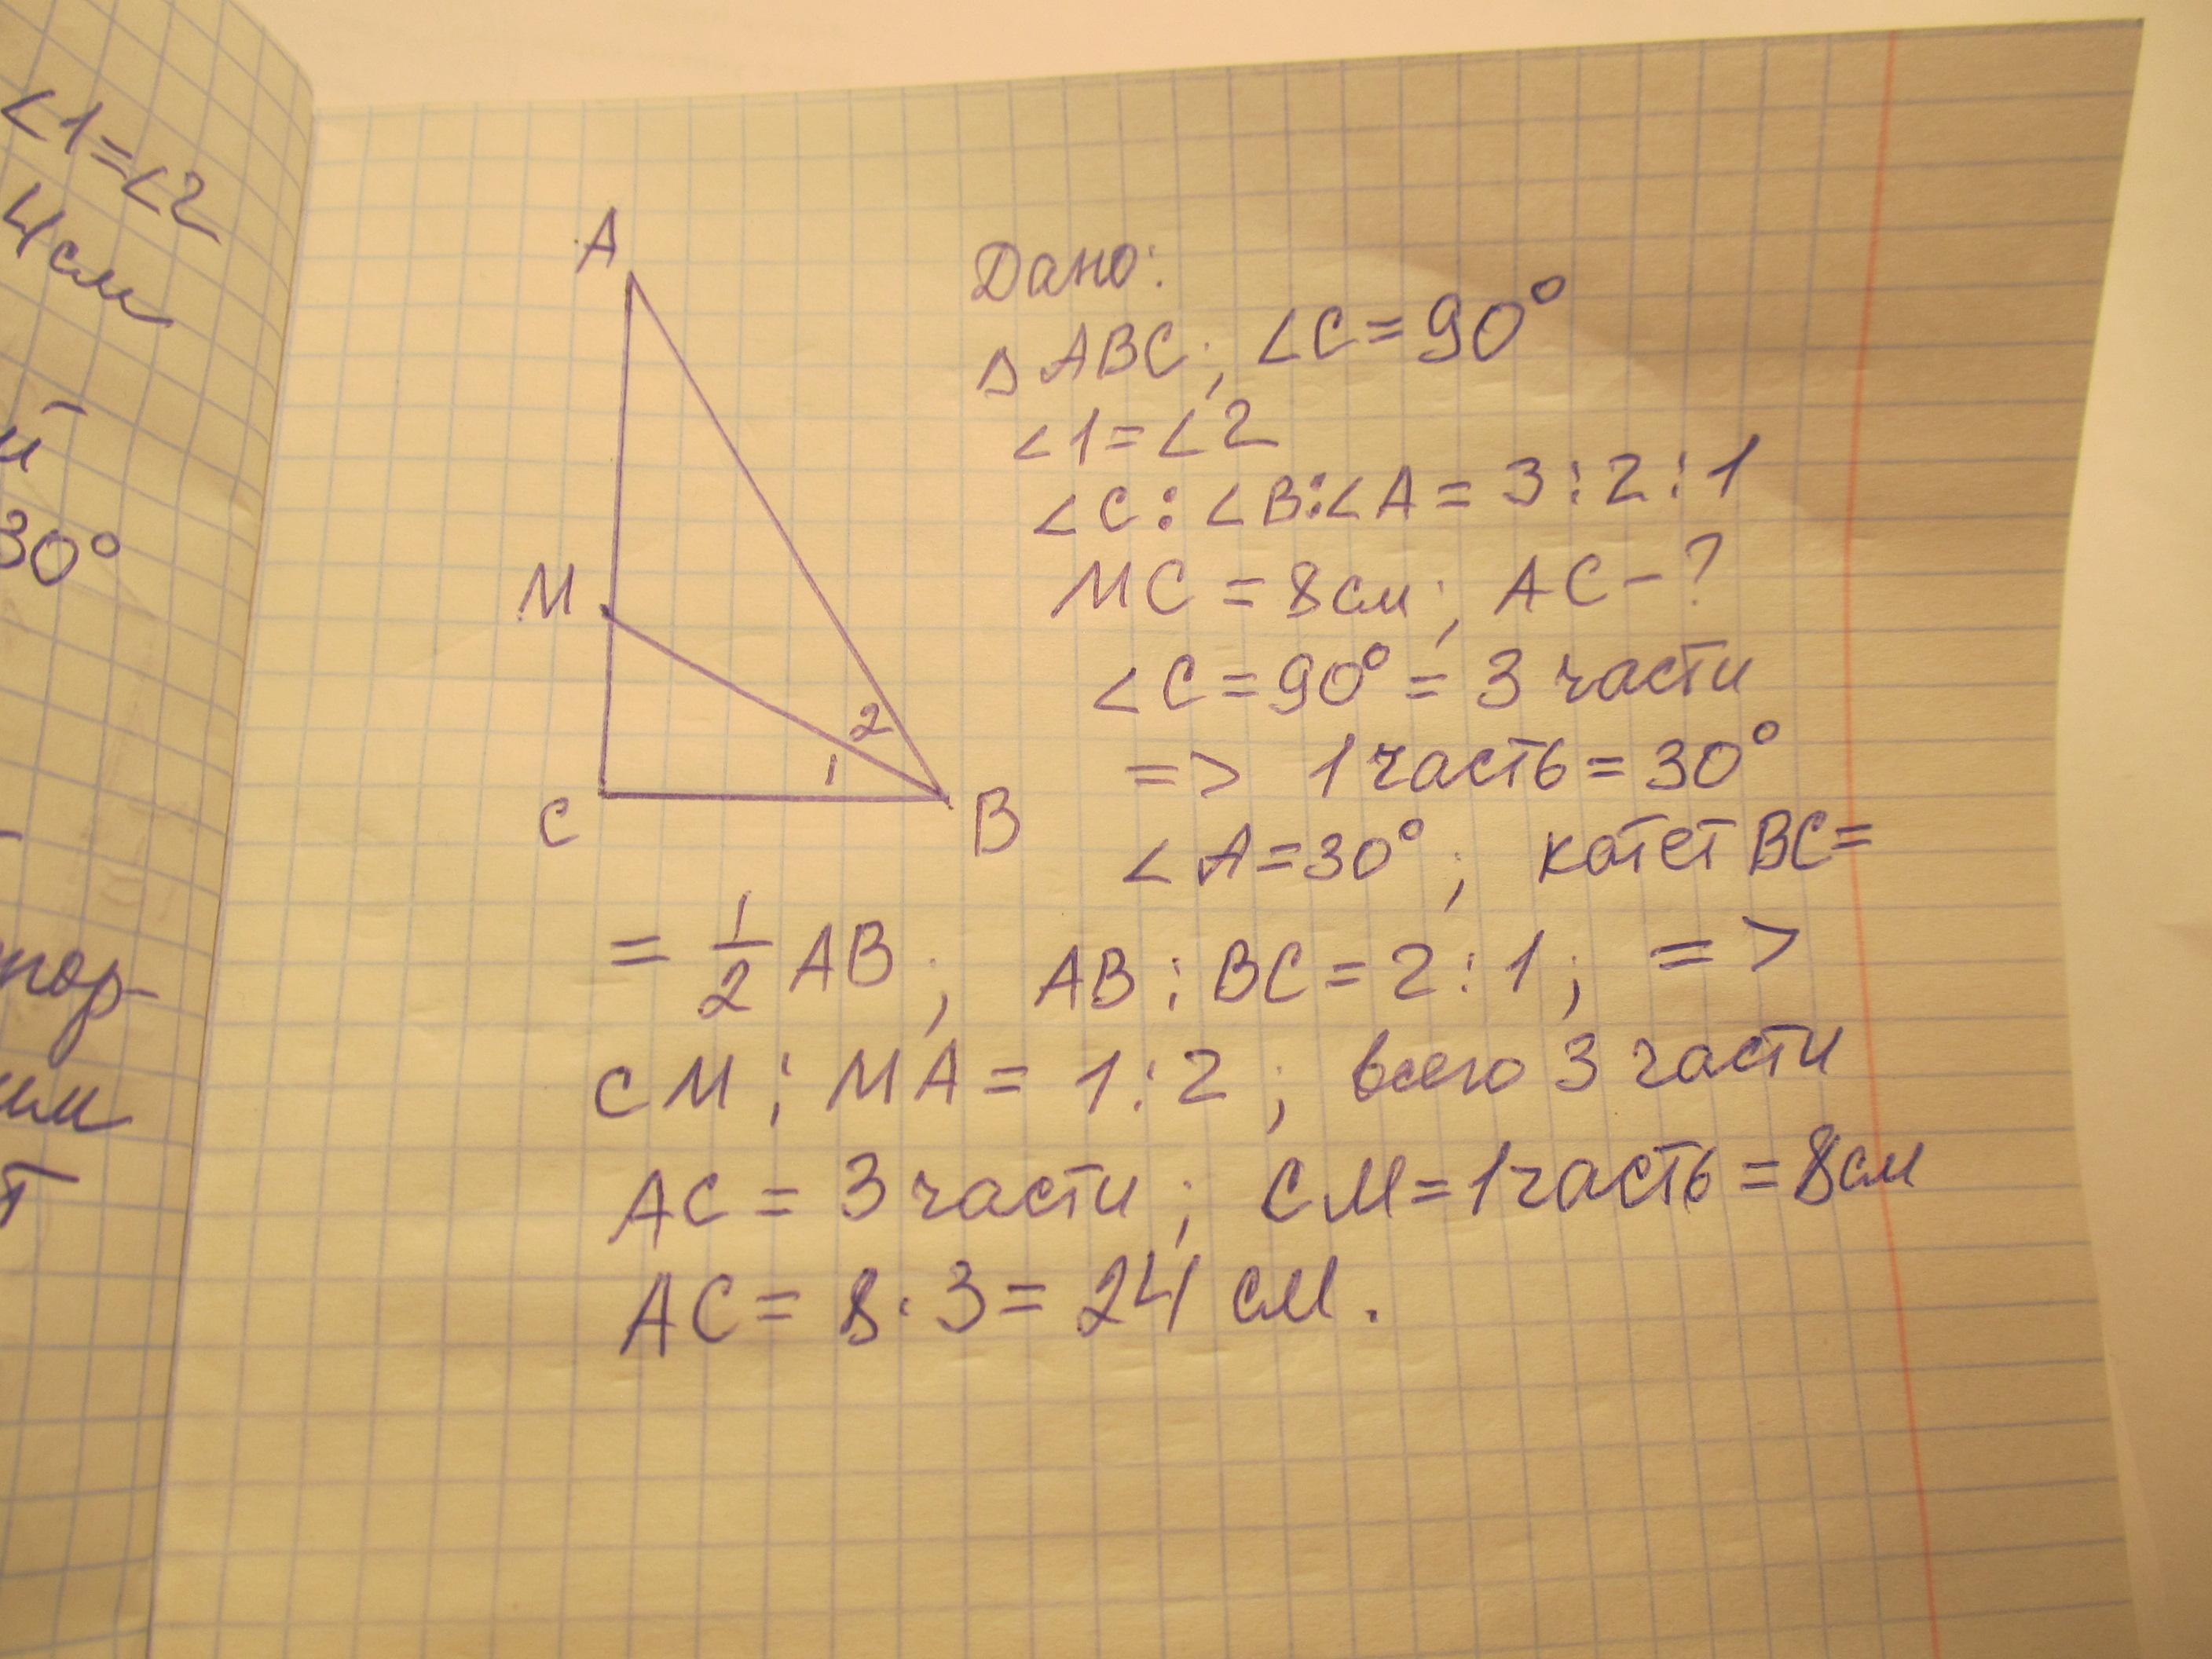 ∠1=∠2
4см
30°
A
M
C
B
1
2
Дано:
△ABC; ∠C=90°
∠1=∠2
∠C:∠B:∠A=3:2:1
MC=8см; AC-?
∠C=90°=3 части
=> 1часть=30°
∠A=30°; катет BC=
=1/2 AB; AB:BC=2:1; =>
CM:MA=1:2; всего 3 части
AC=3 части; CM=1часть=8см
AC=8·3=24 см.